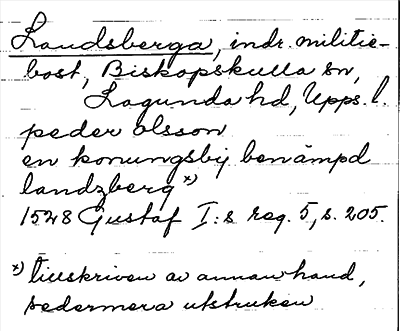 Landsberga, indr. militie-
bost, Biskopskulla sn,
Lagunda hd, Upps. l.
peder olsson
en konungsby benämpd
landzberg x)
1548 Gustaf I:s reg. 5, s. 205.
x) tillskriven av annan hand,
sedermera utstruken